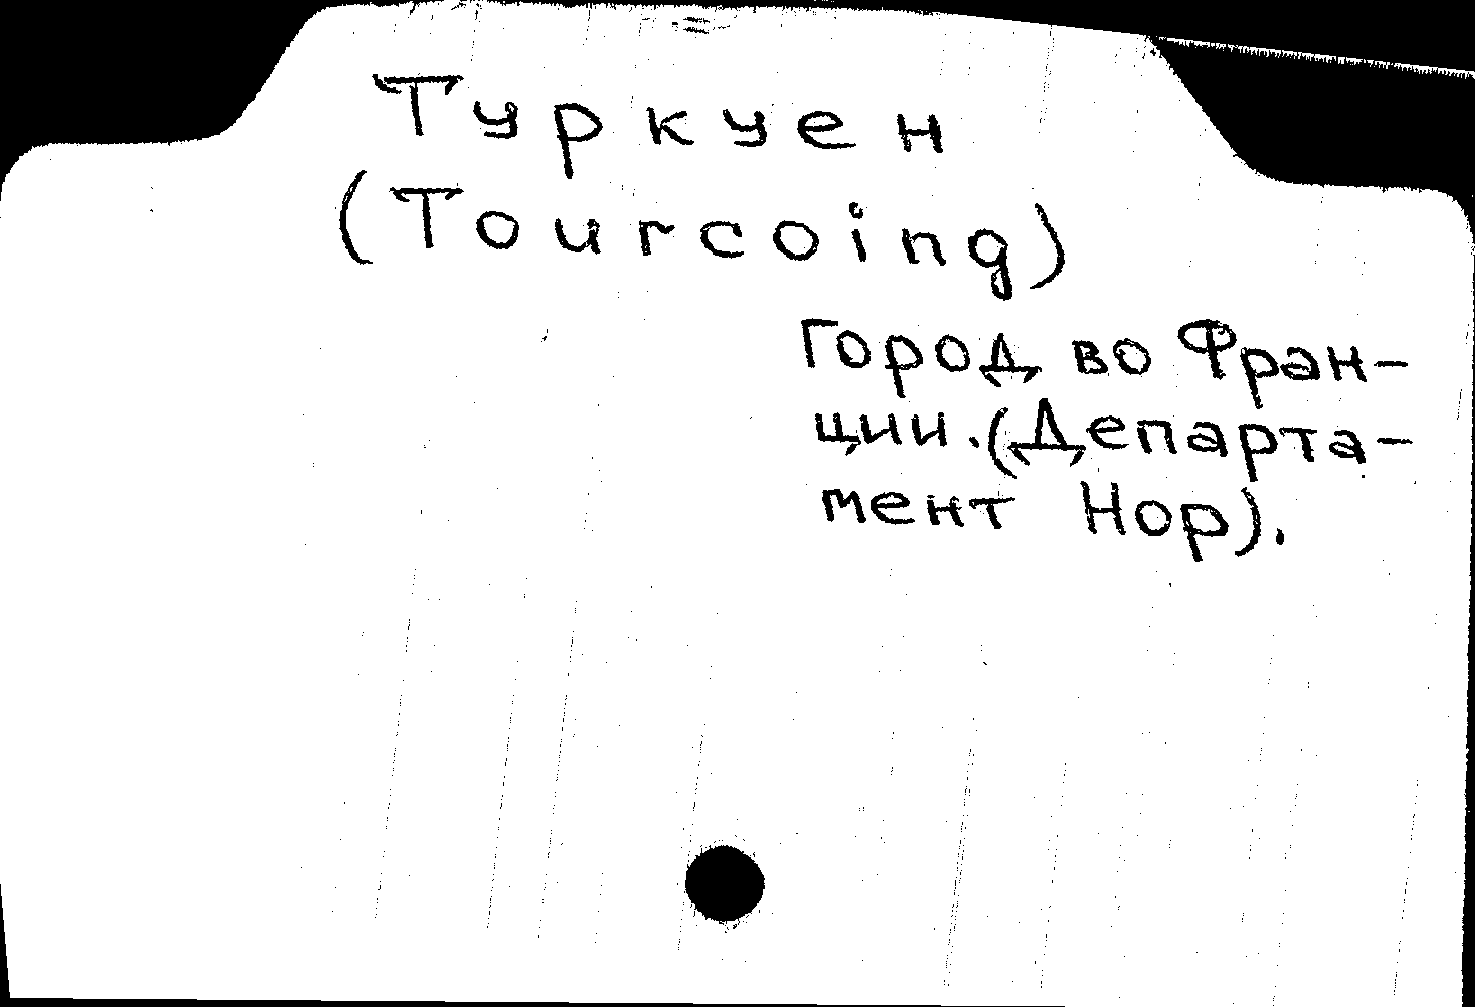 Туркуен
(Tourcoing)
Город во Фран-
ции. (Департа-
мент Нор).